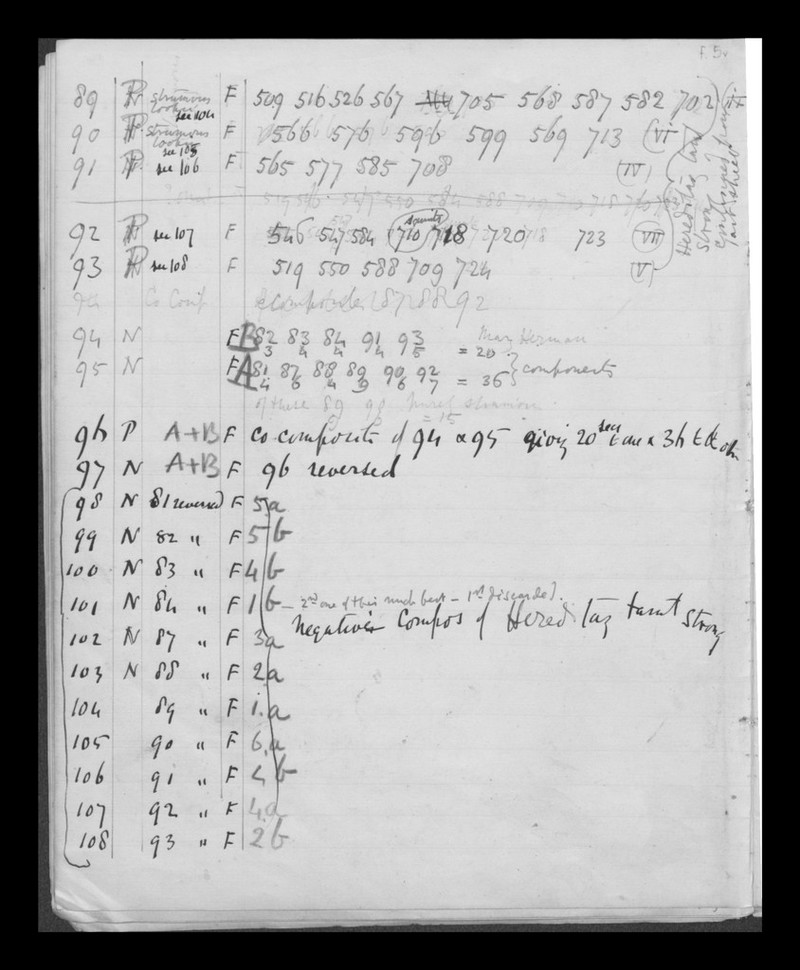 f. 5v
89 P strumous looker see 104 F 509 516 526 567 705 568 587 582 702
90 P strumous looker see 105 F 566 576 596 599 569 713 (VI)
91 P see 106 F 565 577 585 708 (IV)
Hereditary taint strong
92 P see 107 F 546 547 584 710 718 720 723 (VII)
93 P see 108 F 519 550 588 709 724 (V)
94 Co Comp 87 88 92
94 N F B 82 83 84 91 93
3 4 4 4 5 = 20
95 N F A 81 87 88 89 90 92 } components
4 6 4 9 6 7 = 36
of these 89 90 = 15
96 P A+B F Co-composite of 94 & 95 giving 20 to one & 36 to the other
97 N A+B F 96 reversed
98 N 81 reversed F 5 a
99 N 82 " F 5 b
100 N 83 " F 4 b
101 N 84 " F 1 b – 2nd one of this much best – 1st discarded.
Negatives Compos of Hereditary taint strong
102 N 87 " F 3 a
103 N 88 " F 2 a
104 89 " F 1. a
105 90 " F 6. a
106 91 " F 4 b
107 92 " F 4. a
108 93 " F 2 b